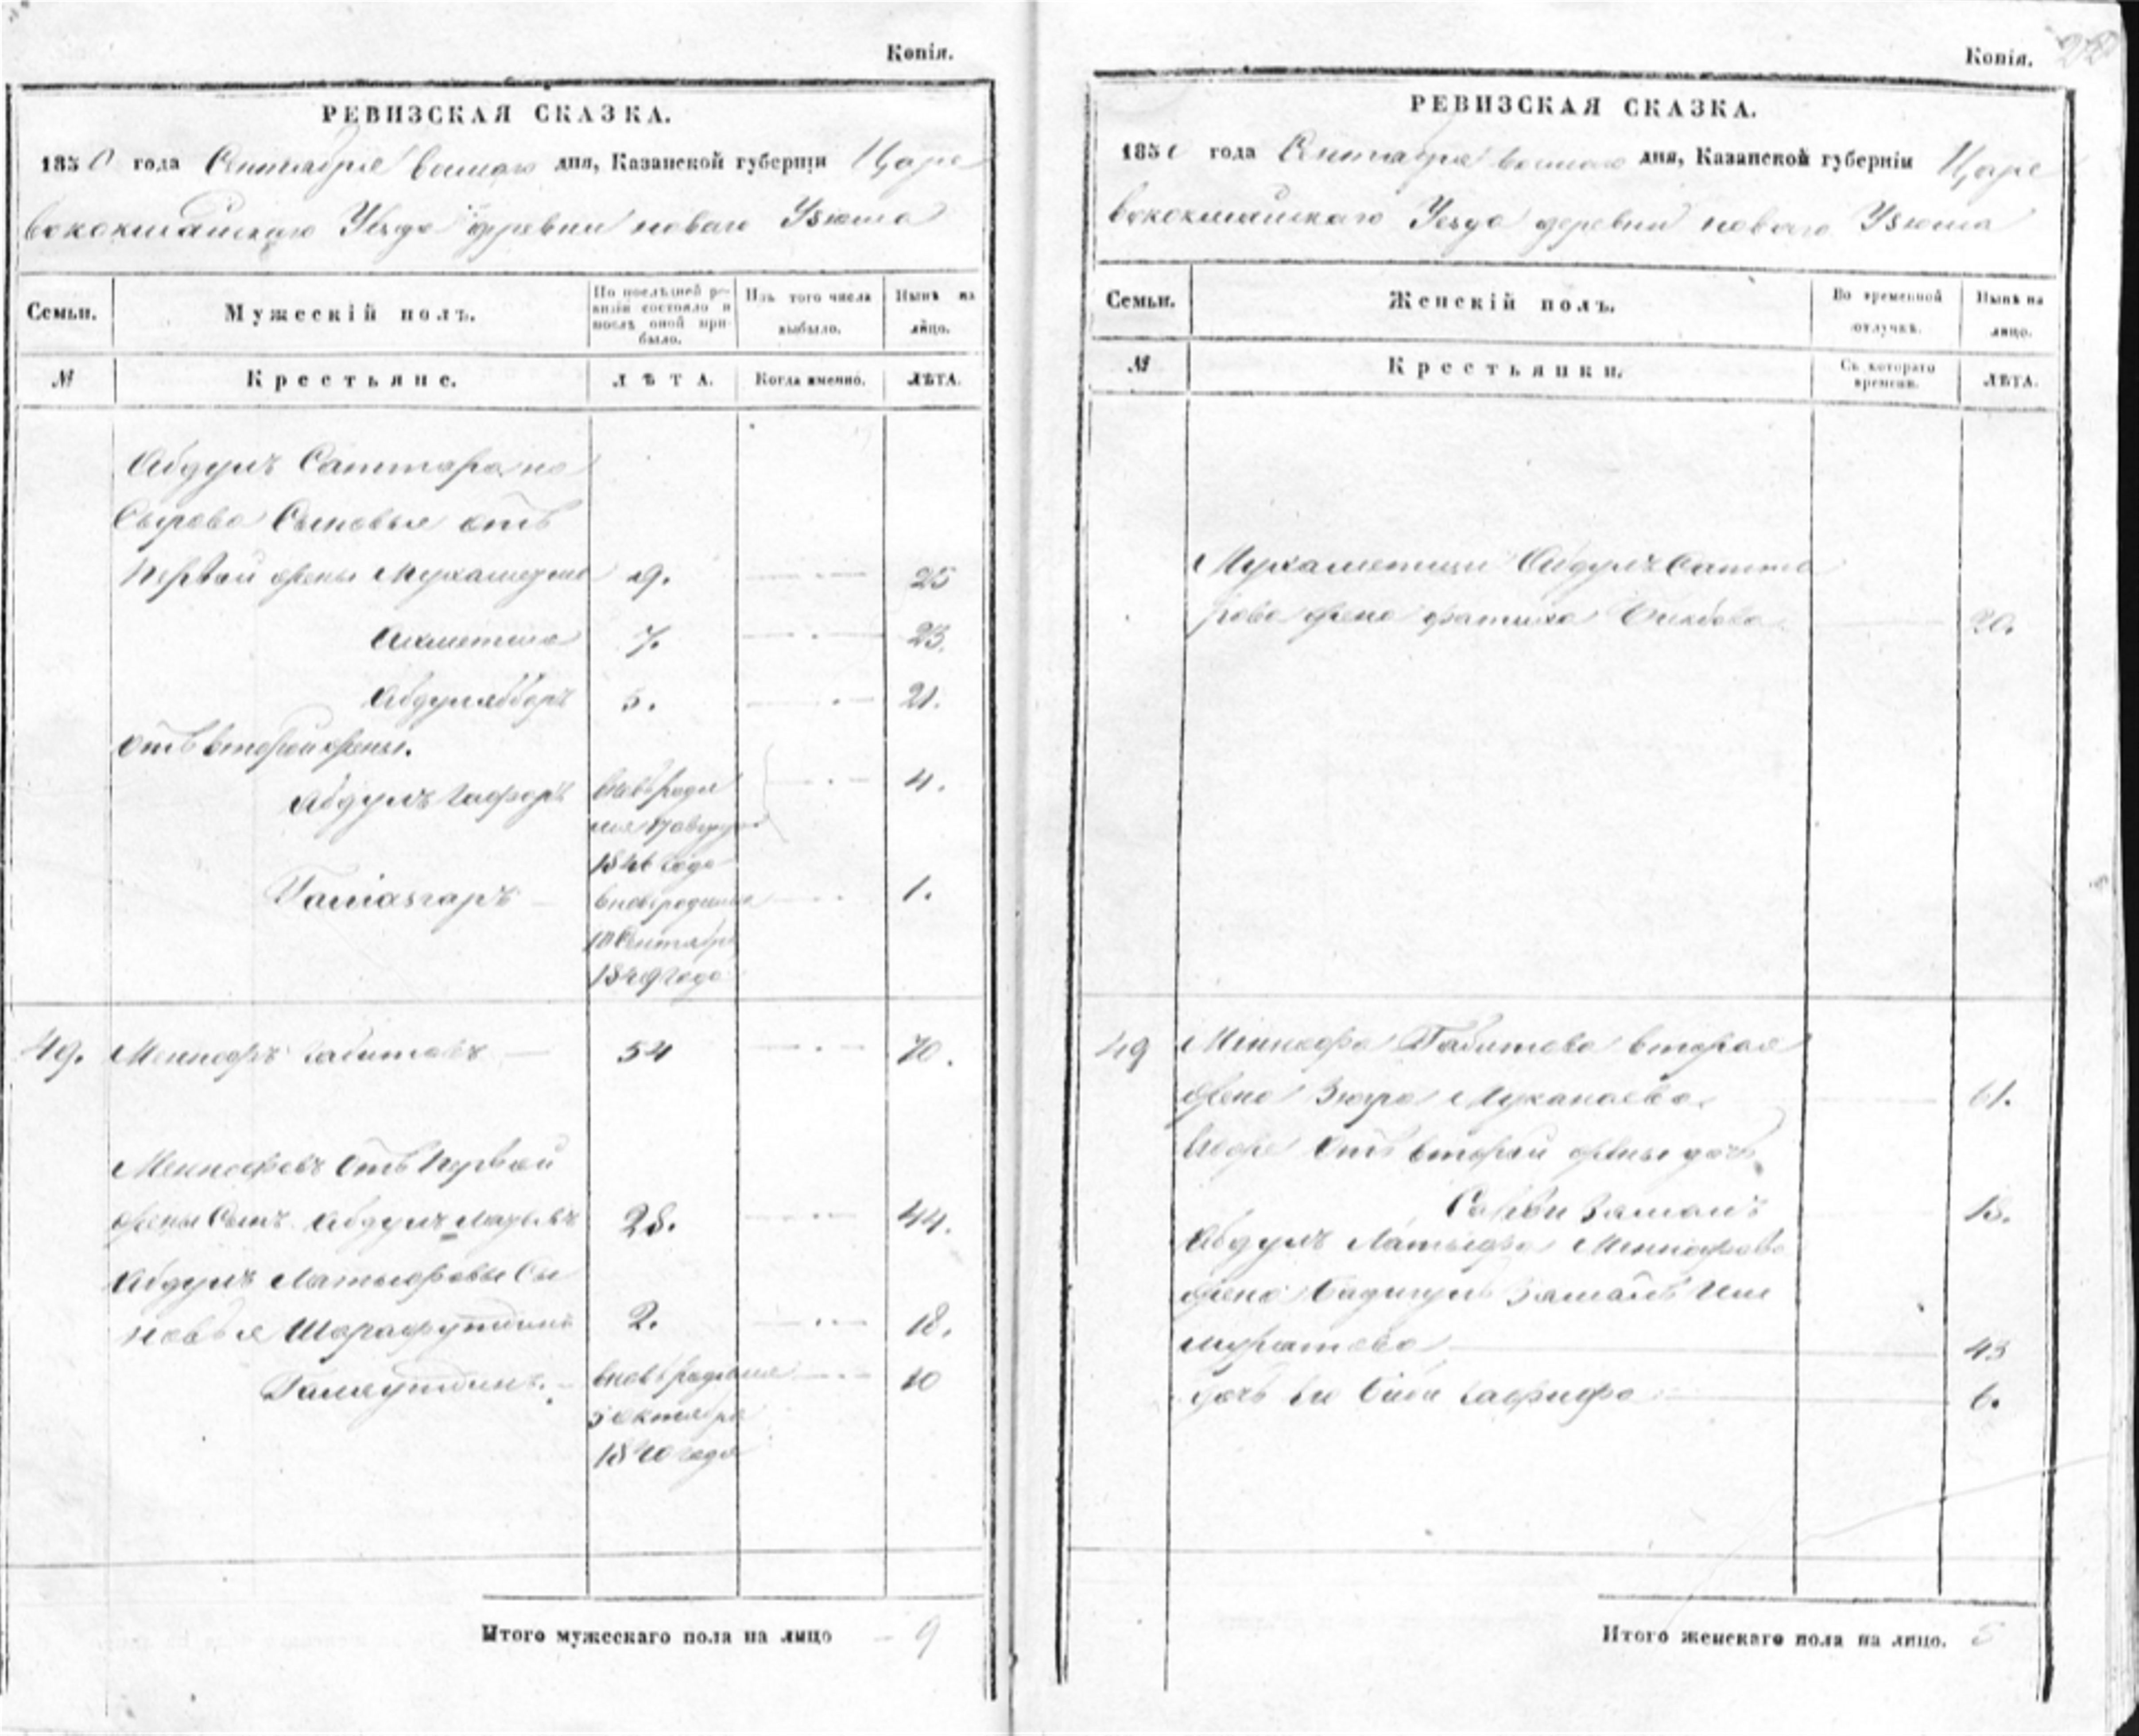 Копія.
РЕВИЗСКАЯ СКАЗКА.
1850 года Сентября дня, Казанской губерніи Царе
вококшайскаго Уѣзда деревни новаго Узюма
Семьи. Мужескій полъ. По послѣдней ре-визіи состояло и послѣ оной при-было. Изъ того числа выбыло. Нынѣ на лицо.
№ Крестьяне. ЛѢТА. Когда именно. ЛѢТА.
Абдулъ Саттара на
Сырова Сыновья отъ
первой жены 9. 25
Ахметша 7. 23.
5. 21.
отъ второй жены.
Абдулъ Гафаръ вновь родил 4.
ся 17 августа
1846 года
вновь родился 1.
10 Сентября
1849 года
49. Меннафъ Габитовъ 54 70.
Меннафовъ отъ первой
жены Сынъ Абдулъ 28. 44.
Абдулъ Латыфовы Сы
новья Шарафутдинъ 2. 18.
вновь родился 10
5 октября
1840 года
Итого мужескаго пола на лицо 9
Копія.
РЕВИЗСКАЯ СКАЗКА.
1850 года Сентября дня, Казанской губерніи Царе
вококшайскаго Уѣзда деревни новаго Узюма
Семьи. Женскій полъ. Во временной отлучкѣ. Нынѣ на лицо.
№ Крестьянки. Съ котораго времени. ЛѢТА.
Мухаметши Абдулъ Сатта
рова жена Фатиха 20.
49 Меннафа Габитова вторая
жена Зюгра 61.
отъ второй жены дочь
Заманъ 18.
Абдулъ Латыфа Меннафова
жена Заманъ Иш
муратова 43
дочь Биби 6.
Итого женскаго пола на лицо. 5